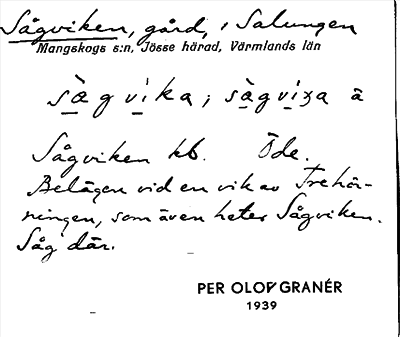 Sågviken, gård, i Salungen
Mangskogs s:n, Jösse härad, Värmlands län
sæ̀gvika; sæ̀gviʒa ä
Sågviken kb. Öde.
Belägen vid en vik av Trehör-
ningen, som även heter Sågviken.
Såg där.
PER OLOF GRANÉR
1939